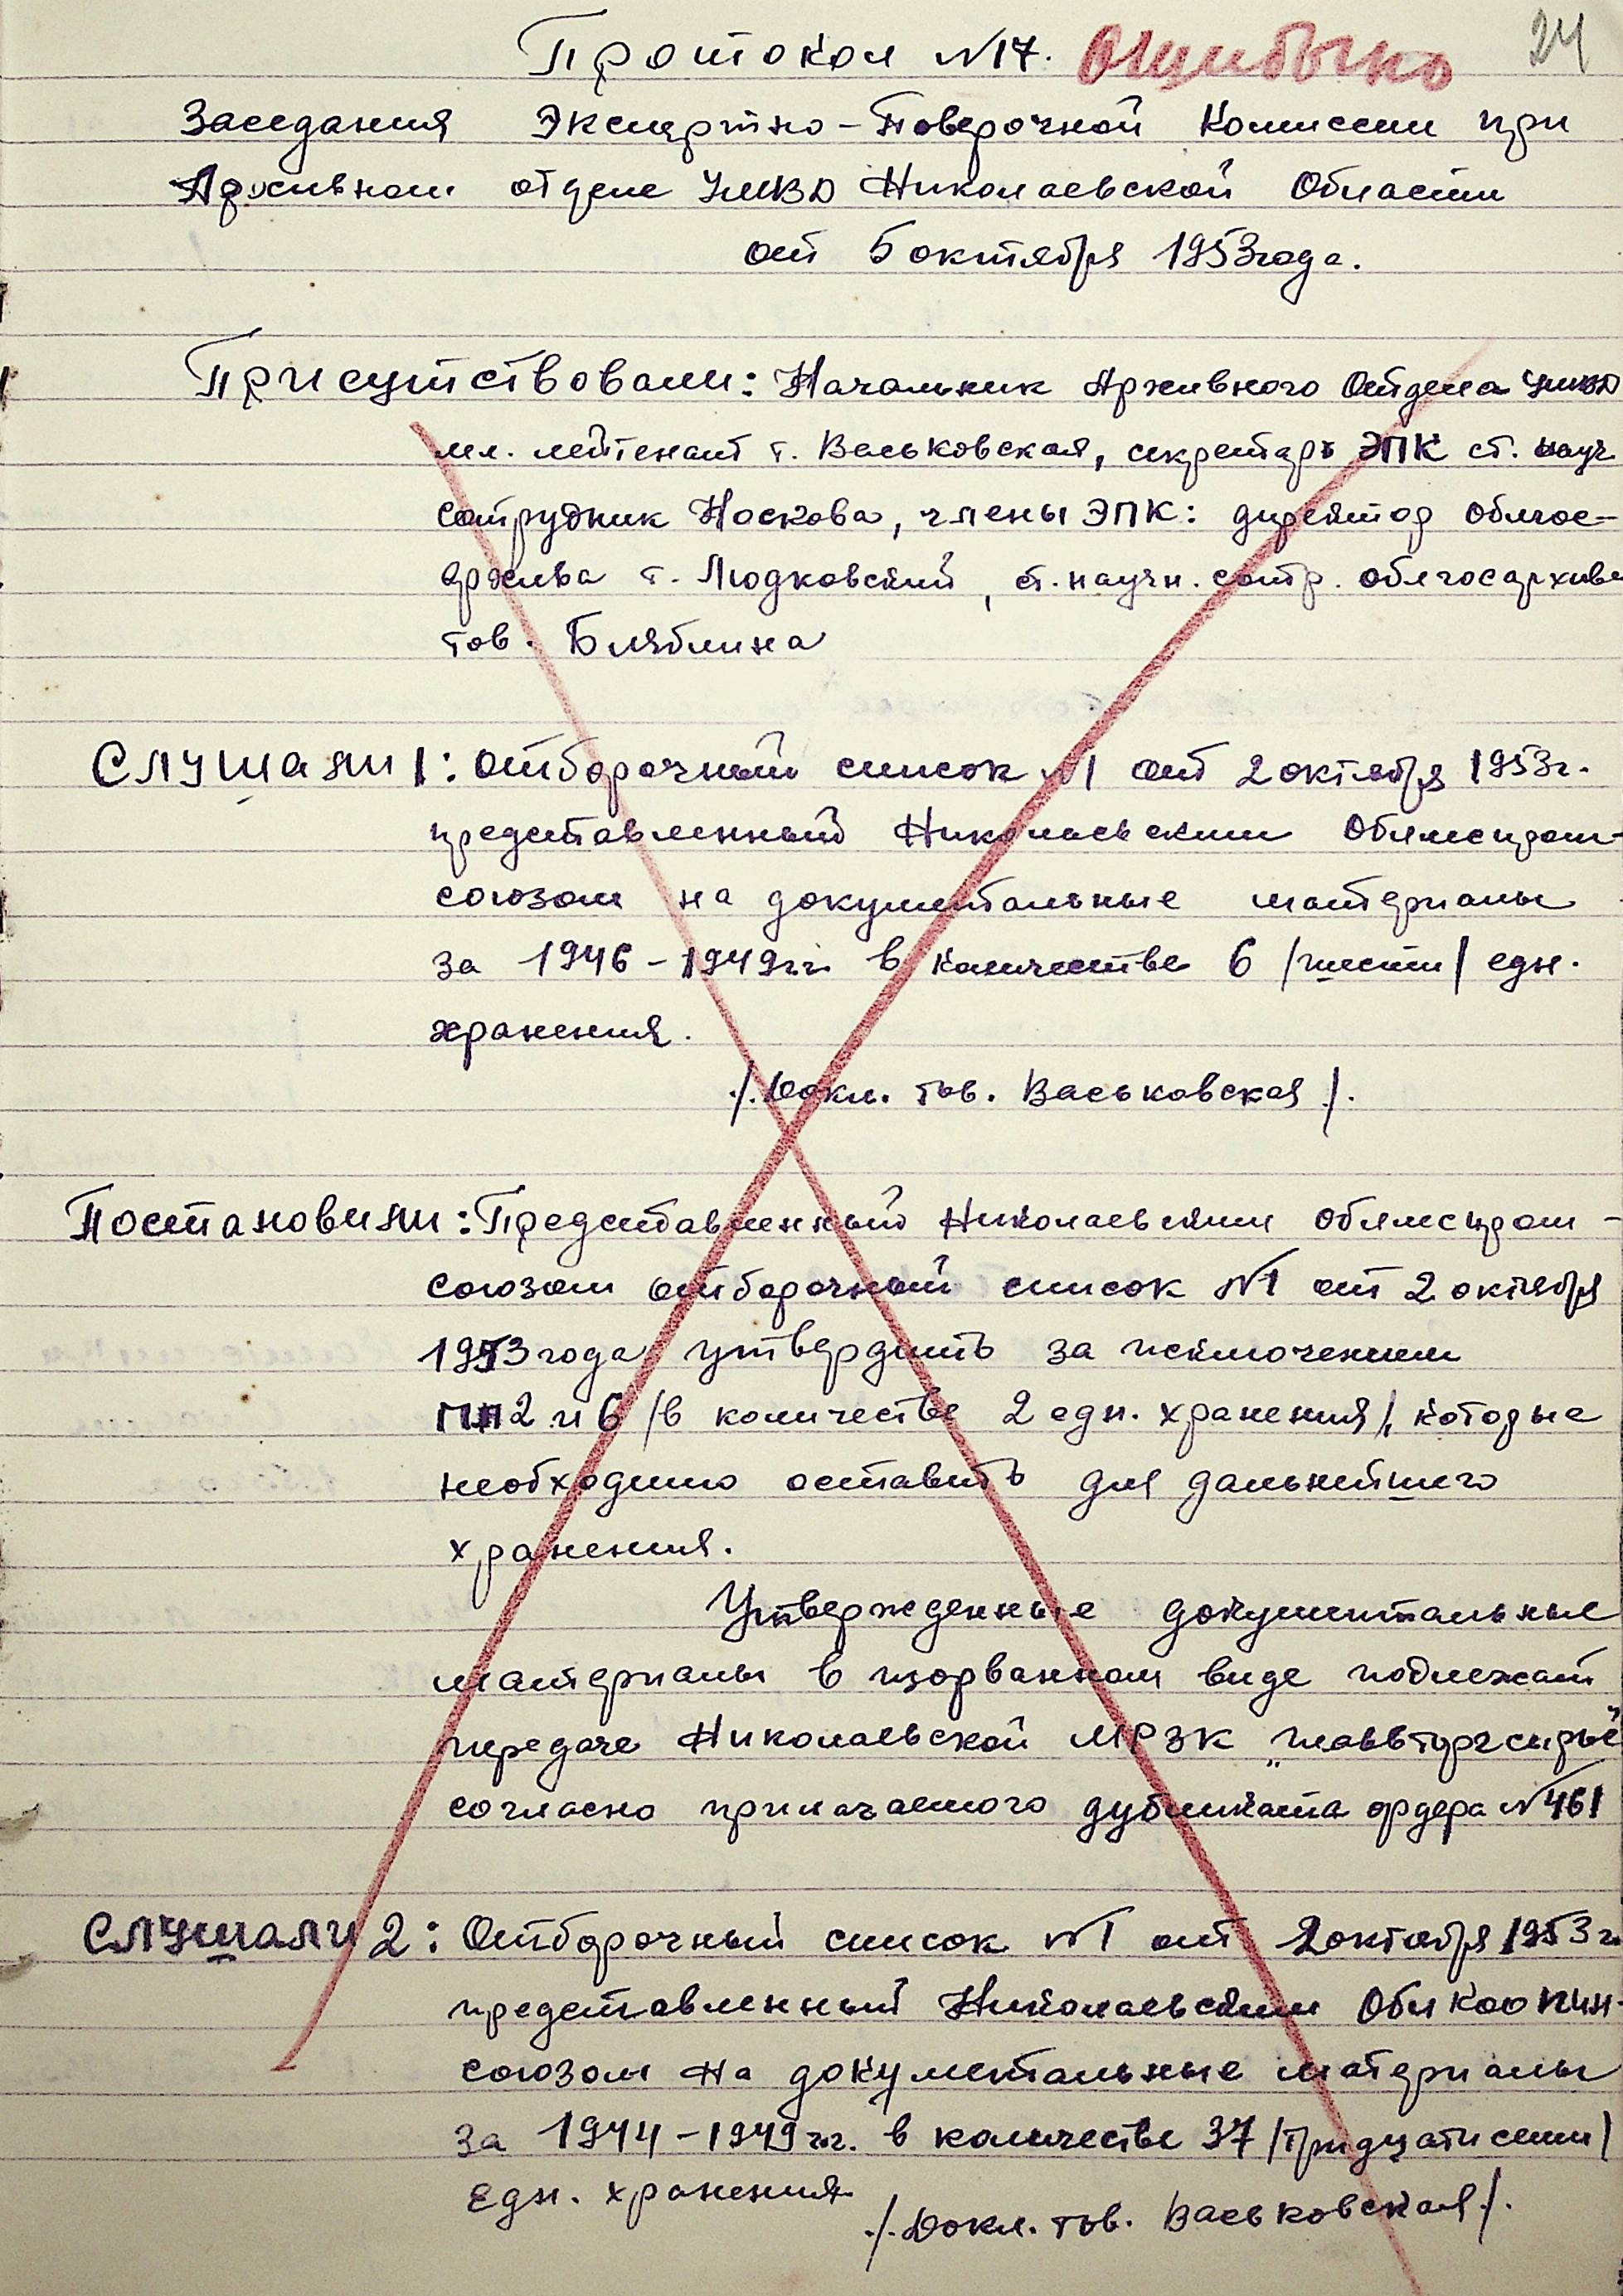 Протокол №17. Ошибочно 24
Заседания Экспертно-Поверочной Комиссии при
Архивном отделе УМВД Николаевской Области
от 5 октября 1953 года.
Присутствовали: Начальник Архивного Отдела УМВД
мл. лейтенант т. Васьковская, секретарь ЭПК ст. науч.
сотрудник Носкова, члены ЭПК: директор облгос-
архива т. Людковский, ст. научн. сотр. облгосархива
тов. Бляблина
Слушали 1: Отборочный список №1 от 2 октября 1953г.
представленный Николаевским Облместпром-
союзом на документальные материалы
за 1946-1949г.г. в количестве 6 /шести/ едн.
хранения.
/.Докл. тов. Васьковская/.
Постановили: Представленный Николаевским облместпром-
союзом отборочный список №1 от 2 октября
1953 года утвердить за исключением
пп 2 и 6 /в количестве 2 едн. хранения/, которые
необходимо оставить для дальнейшего
хранения.
Утвержденные документальные
материалы в изорванном виде подлежат
передаче Николаевской МРЗК „Главвторгсырьё
согласно прилагаемого дубликата ордера №461
Слушали 2: Отборочный список №1 от 2 октября 1953г.
представленный Николаевским Облкоопин-
союзом на документальные материалы
за 1944-1949г.г. в количестве 37 /тридцати семи/
едн. хранения
./.Докл. тов. Васьковская/.